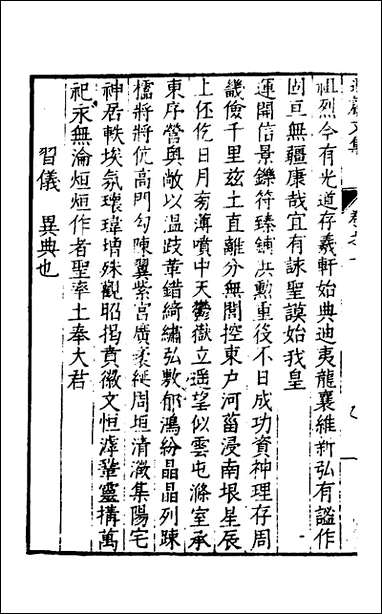 祖烈今有光道存羲軒始典迪夷龍襄維新弘有謐作
固亘無疆康哉宜有詠聖謨始我皇
運開信景鑠符臻鋪洪勲重後不日成功資神理存周
畿儉千里玆土直離分無閡控東户河菑浸南垠星辰
上伾仡日月旁薄噴中天鬱嶽立遥望似雲屯滌室承
東序營與敞以温跂葦錯綺繡弘敷郁鴻紛晶晶列踈
櫺將將伉高門勾陳翼紫宫廣袤綎周垣清瀓集陽宅
神居軼埃氛瓌瑋増殊觀昭揭賁徽文恒滹鞏靈搆萬
祀永無淪烜烜作者聖率土奉大君
習儀 異典也